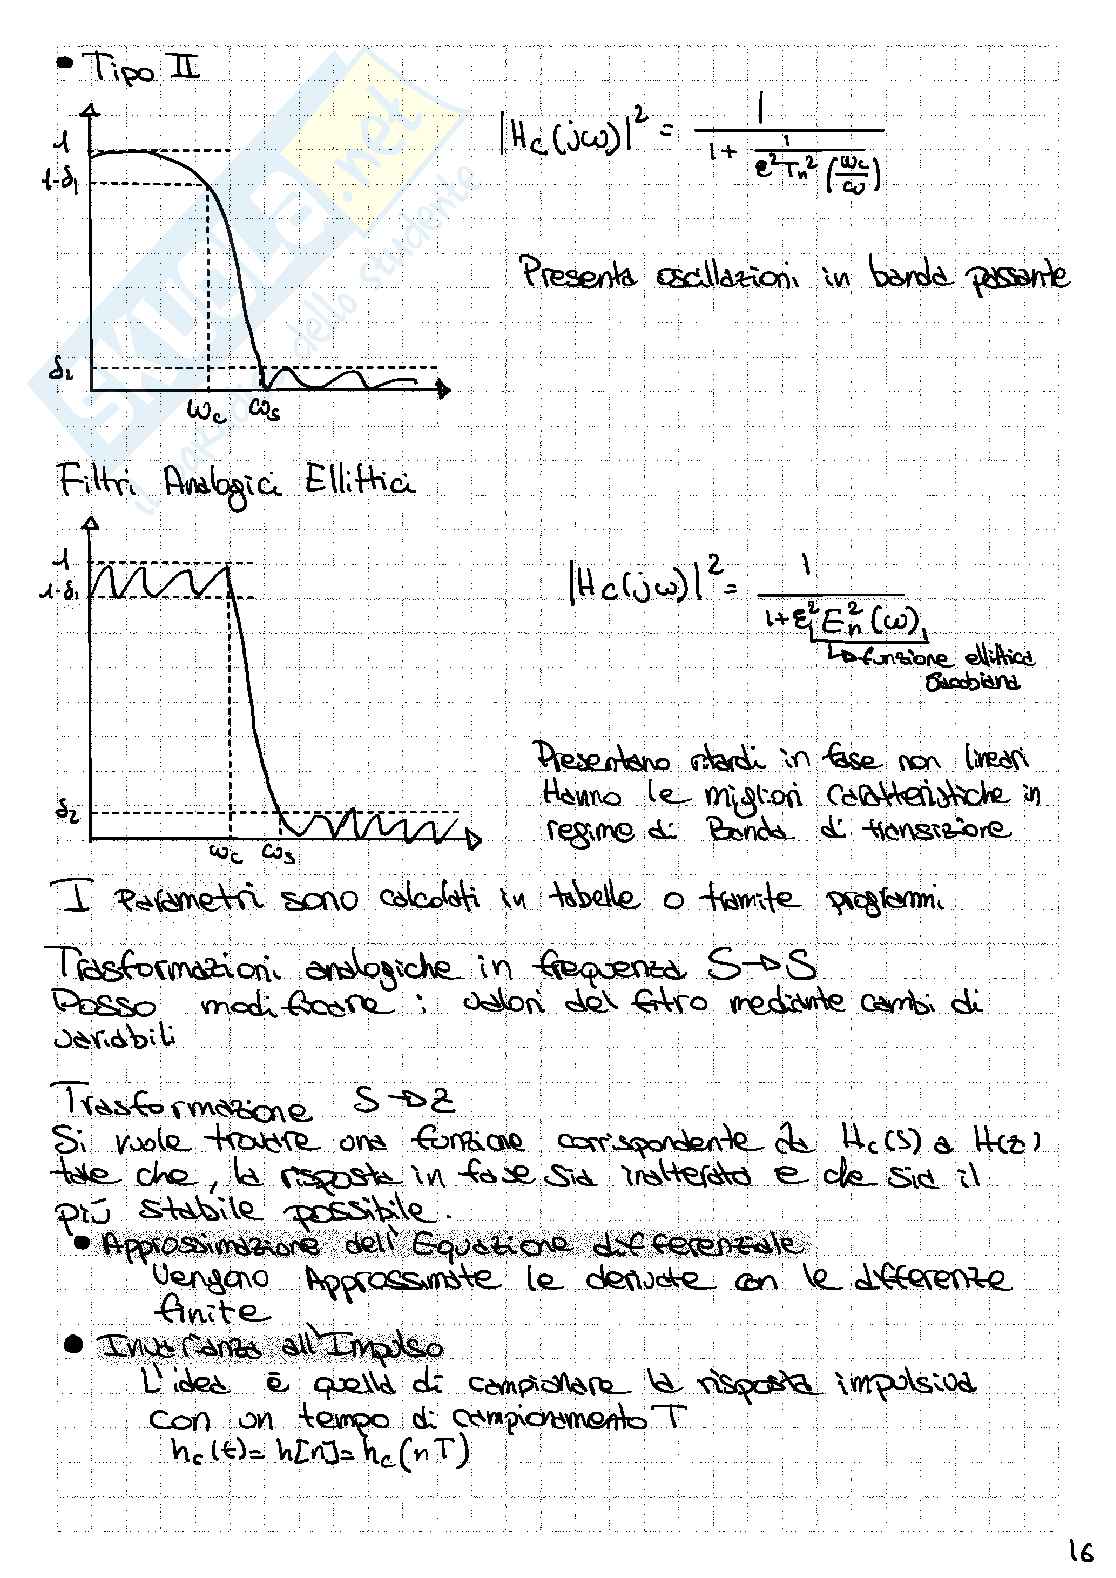 • Tipo II
1
1-δ₁
δ₂
ωc ωs
|Hc(jω)|² = 1 / (1 + 1 / (ε² Tn² (ωc/ω)))
Presenta oscillazioni in banda passante
SKUOLA.net
il paradiso dello studente
Filtri Analogici Ellittici
1
1-δ₁
δ₂
ωc ωs
|Hc(jω)|² = 1 / (1 + ε² En² (ω))
funzione ellittica
Jacobiana
Presentano ritardi in fase non lineari
Hanno le migliori caratteristiche in
regime di Banda di transizione
I Parametri sono calcolati in tabelle o tramite programmi
Trasformazioni analogiche in frequenza S→S
Posso modificare i valori del filtro mediante cambi di
variabili
Trasformazione S→Z
Si vuole trovare una funzione corrispondente da Hc(S) a H(z)
tale che, la risposta in fase sia inalterata e che sia il
più stabile possibile.
• Approssimazione dell'Equazione differenziale
Vengono Approssimate le derivate con le differenze
finite
• Invarianza all'Impulso
L'idea è quella di campionare la risposta impulsiva
con un tempo di campionamento T
hc(t)= h[n]= hc(nT)
16